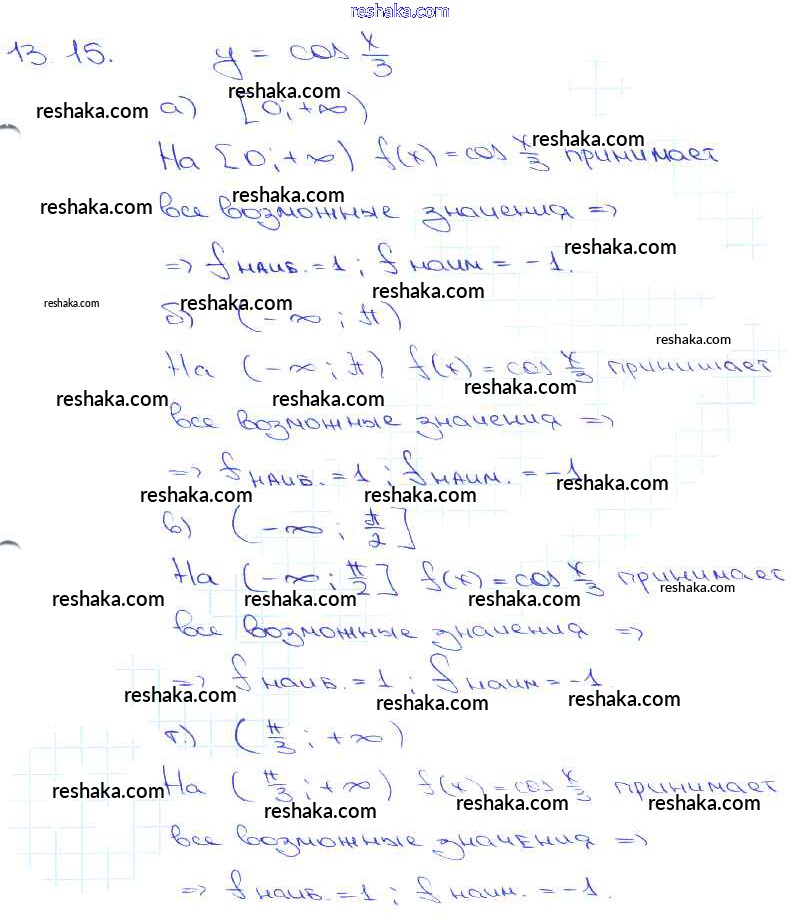 reshaka.com
13.15. y = cos x/3
reshaka.com а) [0; +∞) reshaka.com
На [0; +∞) f(x) = cos x/3 принимает reshaka.com
reshaka.com все возможные значения => reshaka.com
=> fнаиб. = 1; fнаим = -1. reshaka.com
reshaka.com б) (-∞; π) reshaka.com reshaka.com
На (-∞; π) f(x) = cos x/3 принимает reshaka.com
reshaka.com reshaka.com reshaka.com
все возможные значения =>
=> fнаиб. = 1; fнаим. = -1
reshaka.com reshaka.com reshaka.com
в) (-∞; π/2]
На (-∞; π/2] f(x) = cos x/3 принимает
reshaka.com reshaka.com reshaka.com reshaka.com
все возможные значения =>
=> fнаиб. = 1; fнаим = -1
reshaka.com reshaka.com reshaka.com
г.) (π/3; +∞)
На (π/3; +∞) f(x) = cos x/3 принимает
reshaka.com reshaka.com reshaka.com reshaka.com
все возможные значения =>
=> fнаиб. = 1; fнаим. = -1.